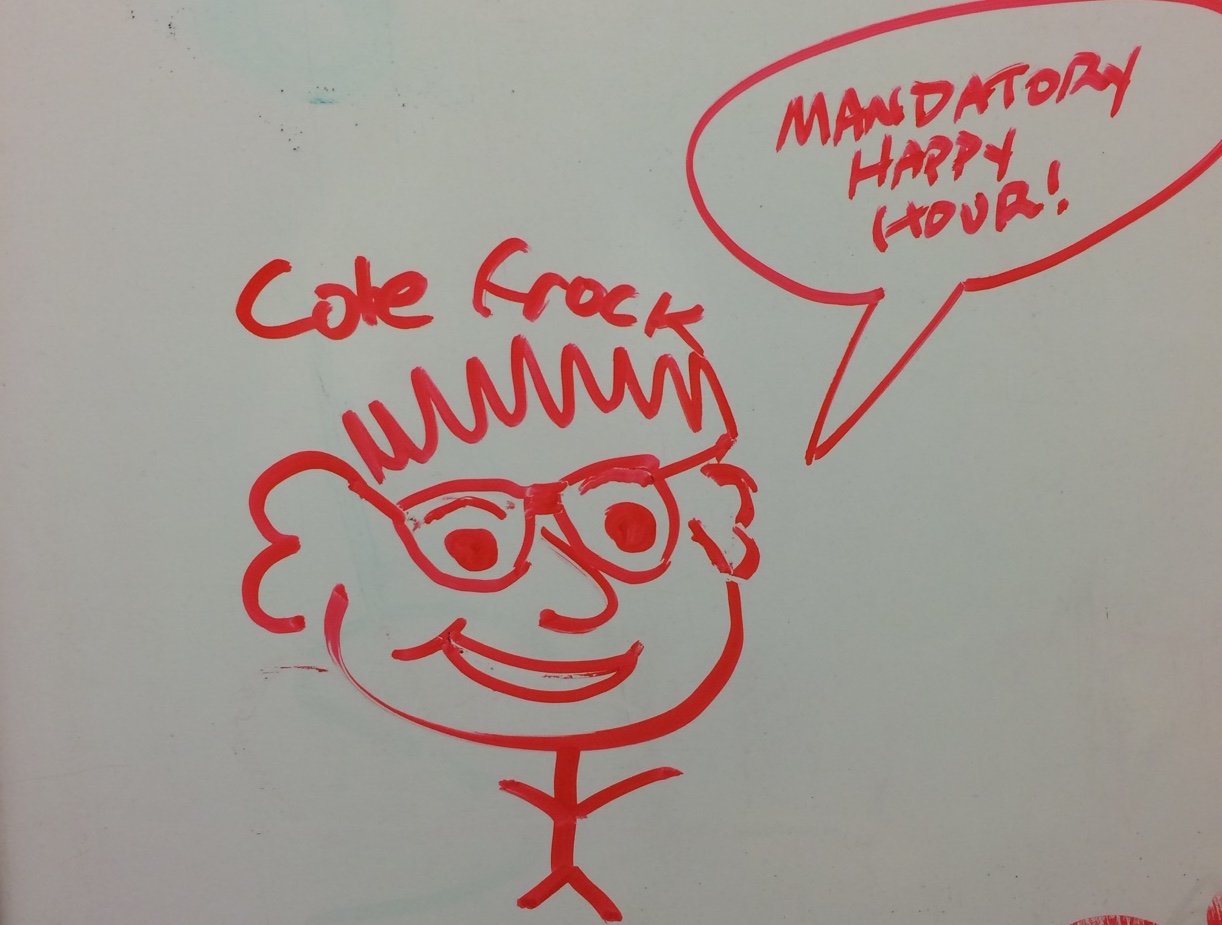 MANDATORY
HAPPY
HOUR!
Cole Frock